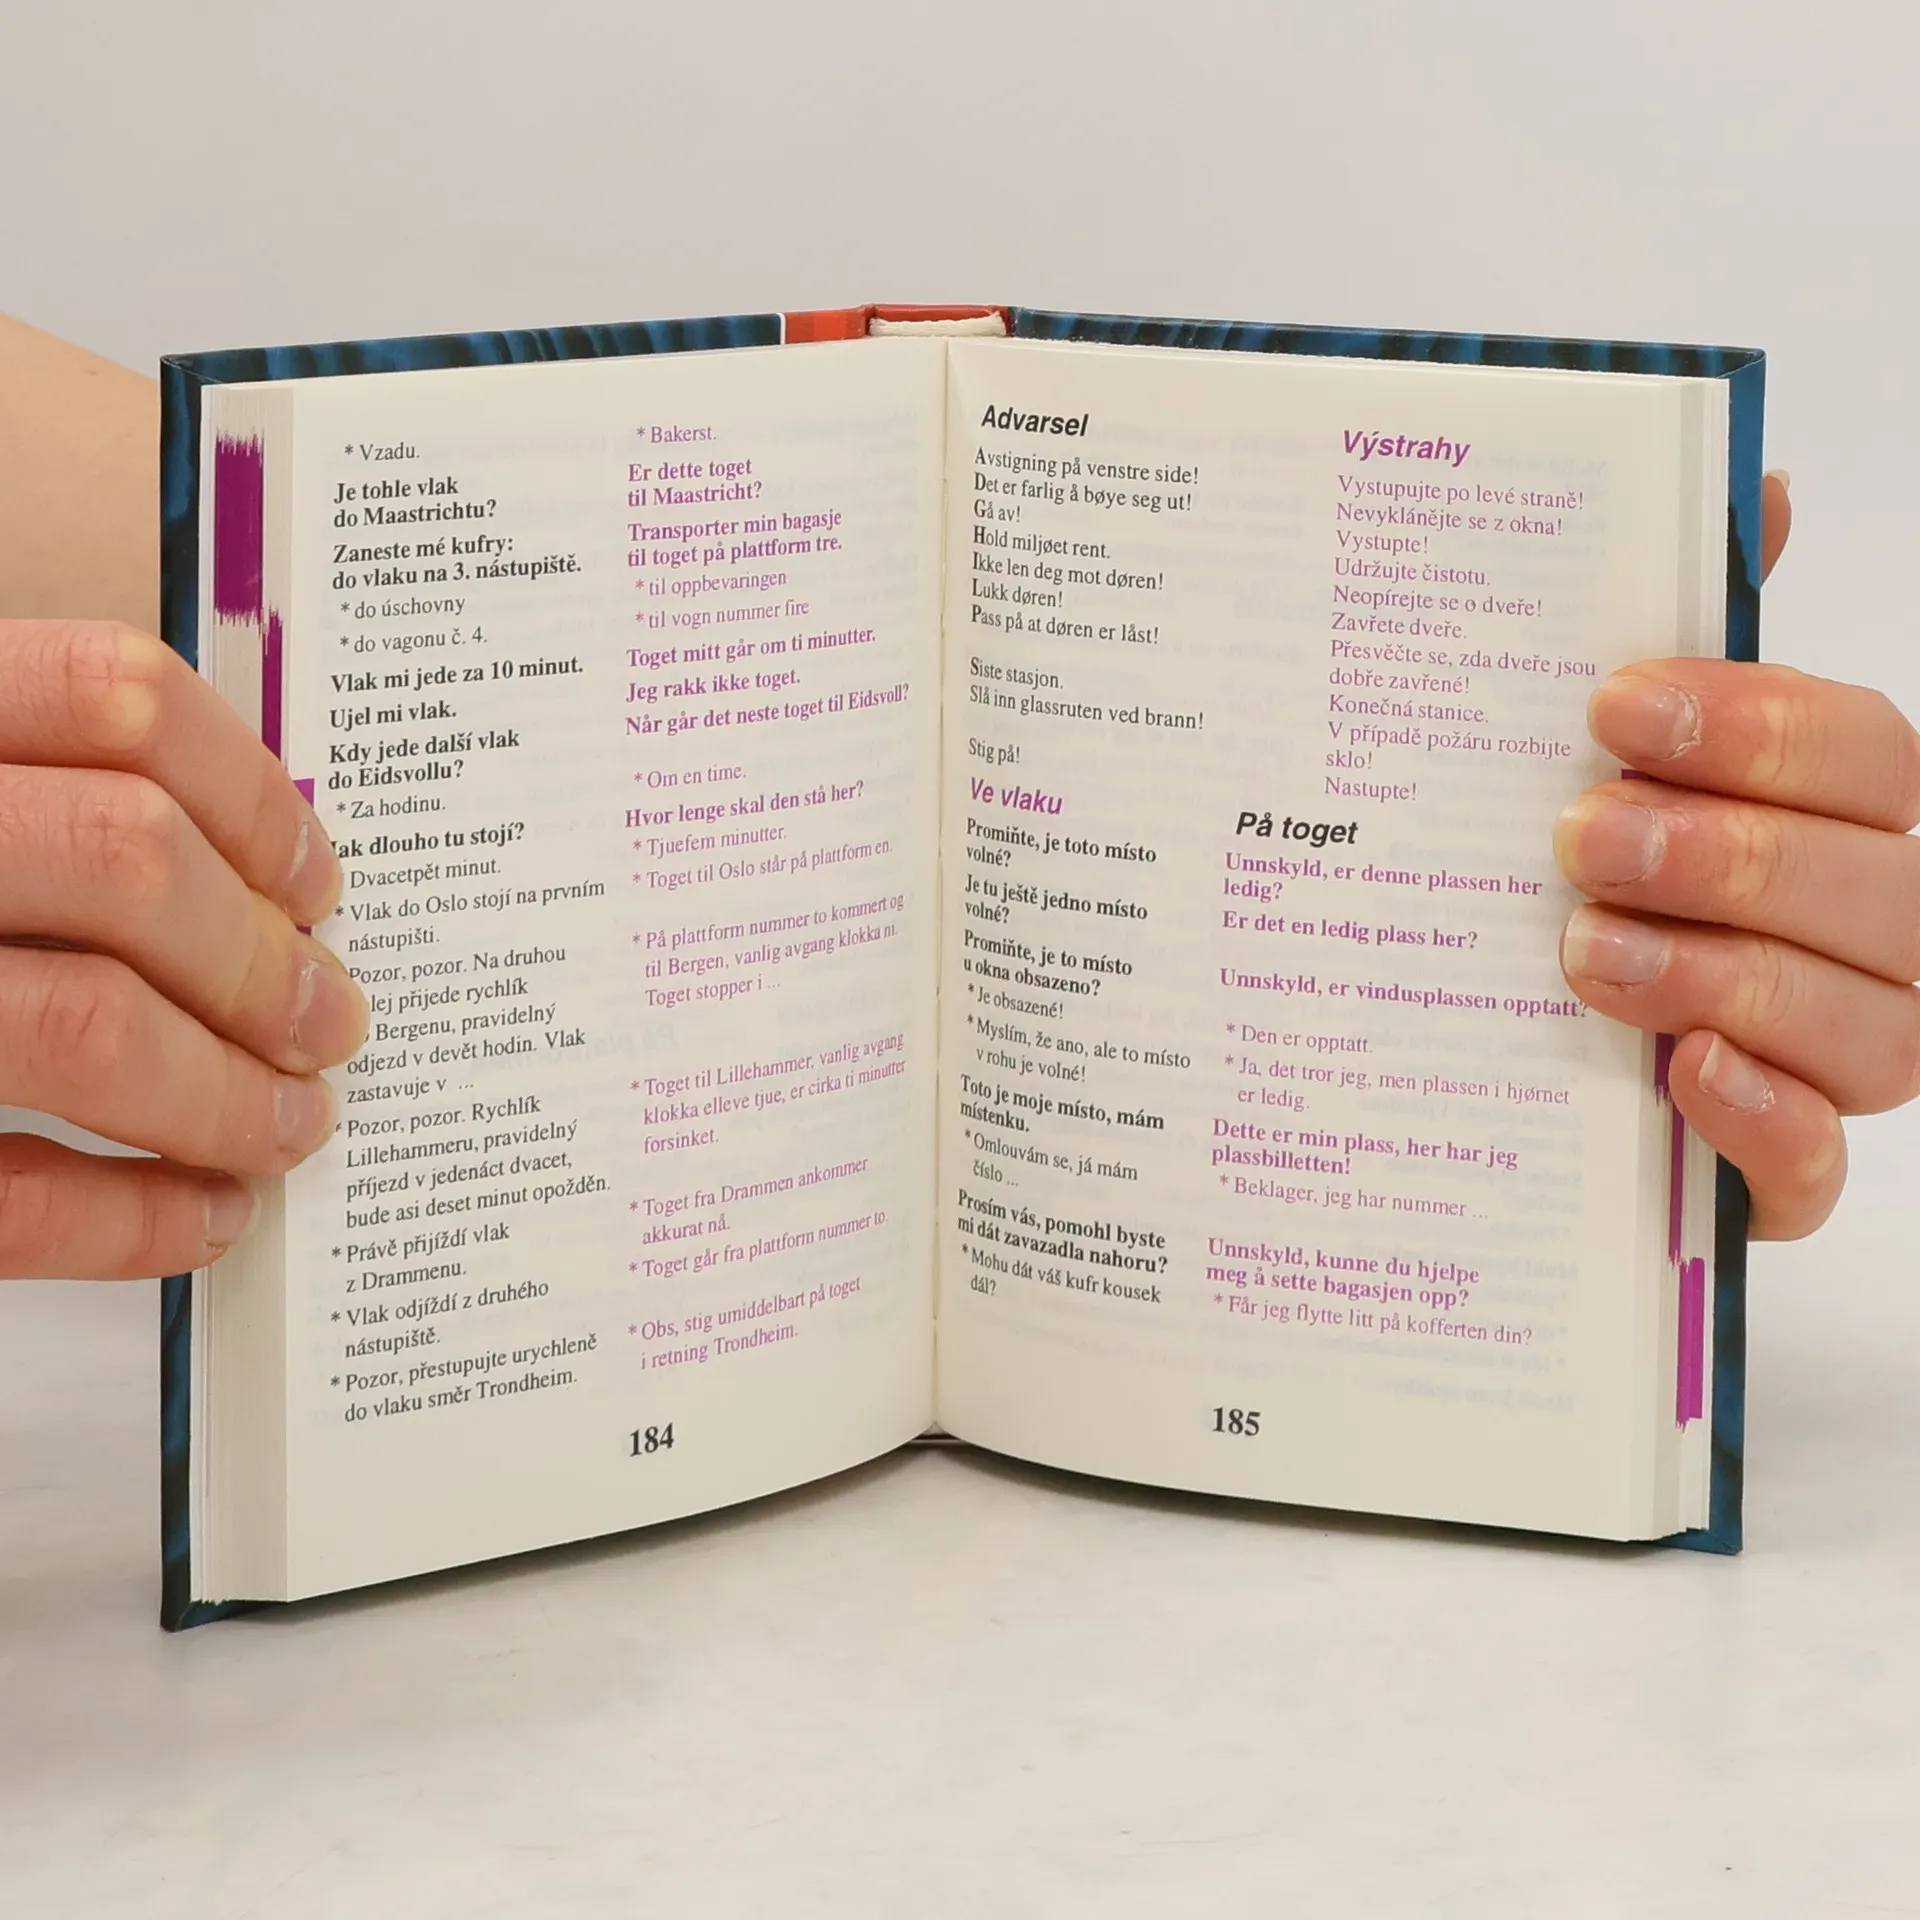 * Vzadu.
Je tohle vlak
do Maastrichtu?
Zaneste mé kufry:
do vlaku na 3. nástupiště.
* do úschovny
* do vagonu č. 4.
Vlak mi jede za 10 minut.
Ujel mi vlak.
Kdy jede další vlak
do Eidsvollu?
* Za hodinu.
Jak dlouho tu stojí?
Dvacetpět minut.
* Vlak do Oslo stojí na prvním
nástupišti.
Pozor, pozor. Na druhou
přijede rychlík
Bergenu, pravidelný
odjezd v devět hodin. Vlak
zastavuje v ...
* Pozor, pozor. Rychlík
Lillehammeru, pravidelný
příjezd v jedenáct dvacet,
bude asi deset minut opožděn.
* Právě přijíždí vlak
z Drammenu.
* Vlak odjíždí z druhého
nástupiště.
* Pozor, přestupujte urychleně
do vlaku směr Trondheim.
* Bakerst.
Er dette toget
til Maastricht?
Transporter min bagasje
til toget på plattform tre.
* til oppbevaringen
* til vogn nummer fire
Toget mitt går om ti minutter.
Jeg rakk ikke toget.
Når går det neste toget til Eidsvoll?
* Om en time.
Hvor lenge skal den stå her?
* Tjuefem minutter.
* Toget til Oslo står på plattform en.
* På plattform nummer to kommert og
til Bergen, vanlig avgang klokka ni.
Toget stopper i ...
* Toget til Lillehammer, vanlig avgang
klokka elleve tjue, er cirka ti minutter
forsinket.
* Toget fra Drammen ankommer
akkurat nå.
* Toget går fra plattform nummer to.
* Obs, stig umiddelbart på toget
i retning Trondheim.
184
Advarsel
Avstigning på venstre side!
Det er farlig å bøye seg ut!
Gå av!
Hold miljøet rent.
Ikke len deg mot døren!
Lukk døren!
Pass på at døren er låst!
Siste stasjon.
Slå inn glassruten ved brann!
Stig på!
Výstrahy
Vystupujte po levé straně!
Nevyklánějte se z okna!
Vystupte!
Udržujte čistotu.
Neopírejte se o dveře!
Zavřete dveře.
Přesvěčte se, zda dveře jsou
dobře zavřené!
Konečná stanice.
V případě požáru rozbijte
sklo!
Nastupte!
Ve vlaku
Promiňte, je toto místo
volné?
Je tu ještě jedno místo
volné?
Promiňte, je to místo
u okna obsazeno?
* Je obsazené!
* Myslím, že ano, ale to místo
v rohu je volné!
Toto je moje místo, mám
místenku.
* Omlouvám se, já mám
číslo ...
Prosím vás, pomohl byste
mi dát zavazadla nahoru?
* Mohu dát váš kufr kousek
dál?
På toget
Unnskyld, er denne plassen her
ledig?
Er det en ledig plass her?
Unnskyld, er vindusplassen opptatt?
* Den er opptatt.
* Ja, det tror jeg, men plassen i hjørnet
er ledig.
Dette er min plass, her har jeg
plassbilletten!
* Beklager, jeg har nummer ...
Unnskyld, kunne du hjelpe
meg å sette bagasjen opp?
* Får jeg flytte litt på kofferten din?
185